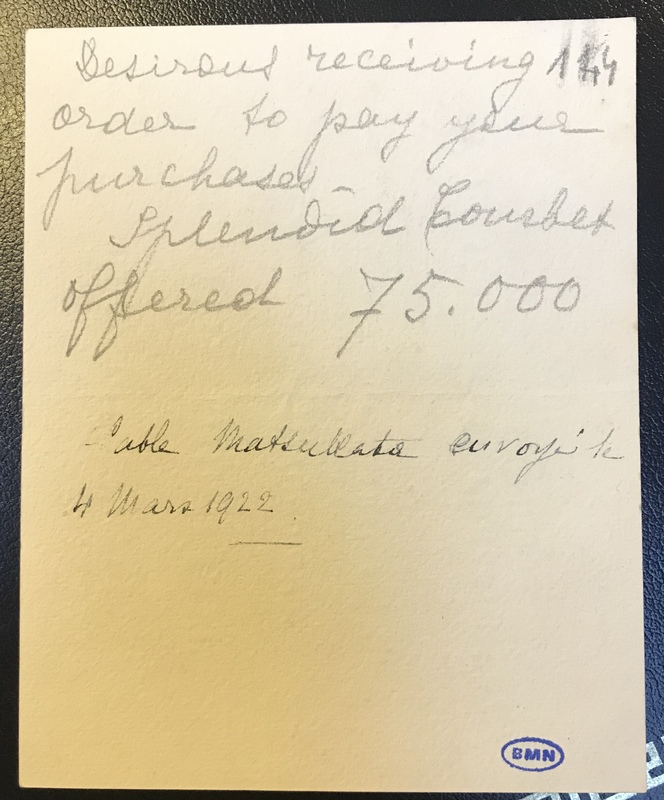 Desirous receiving 144
order to pay your
purchases
Splendid Courbet
offered 75.000
Cable Matsukata envoyé le
4 Mars 1922
BMN